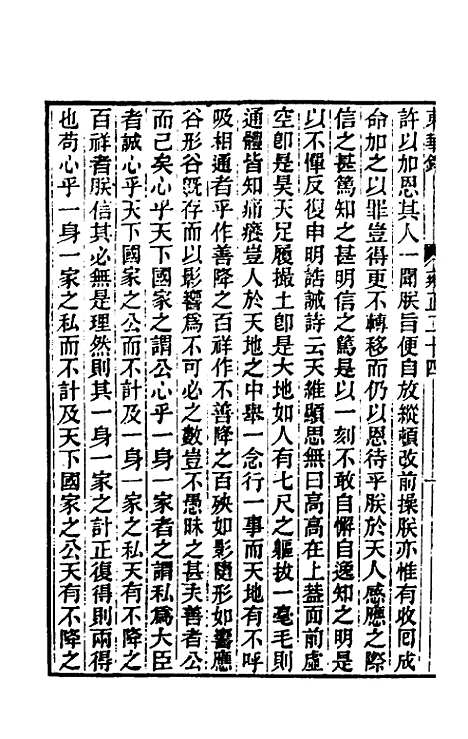 東華錄 雍正二十四
許以加恩其人一聞朕旨便自放縱頓改前操朕亦惟有收囘成
命加之以罪豈得更不轉移而仍以恩待乎朕於天人感應之際
信之甚篤知之甚明信之篤是以一刻不敢自懈自逸知之明是
以不憚反復申明誥誡詩云天維顯思無曰高高在上蓋面前虛
空卽是昊天足履撮土卽是大地如人有七尺之軀拔一毫毛則
通體皆知痛癢豈人於天地之中舉一念行一事而天地有不呼
吸相通者乎作善降之百祥作不善降之百殃如影隨形如響應
谷形谷旣存而以影響爲不可必之數豈不愚昧之甚夫善者公
而已矣心乎天下國家之謂公心乎一身一家者之謂私爲大臣
者誠心乎天下國家之公而不計及一身一家之私天有不降之
百祥者朕信其必無是理然則其一身一家之計正復得則兩得
也苟心乎一身一家之私而不計及天下國家之公天有不降之